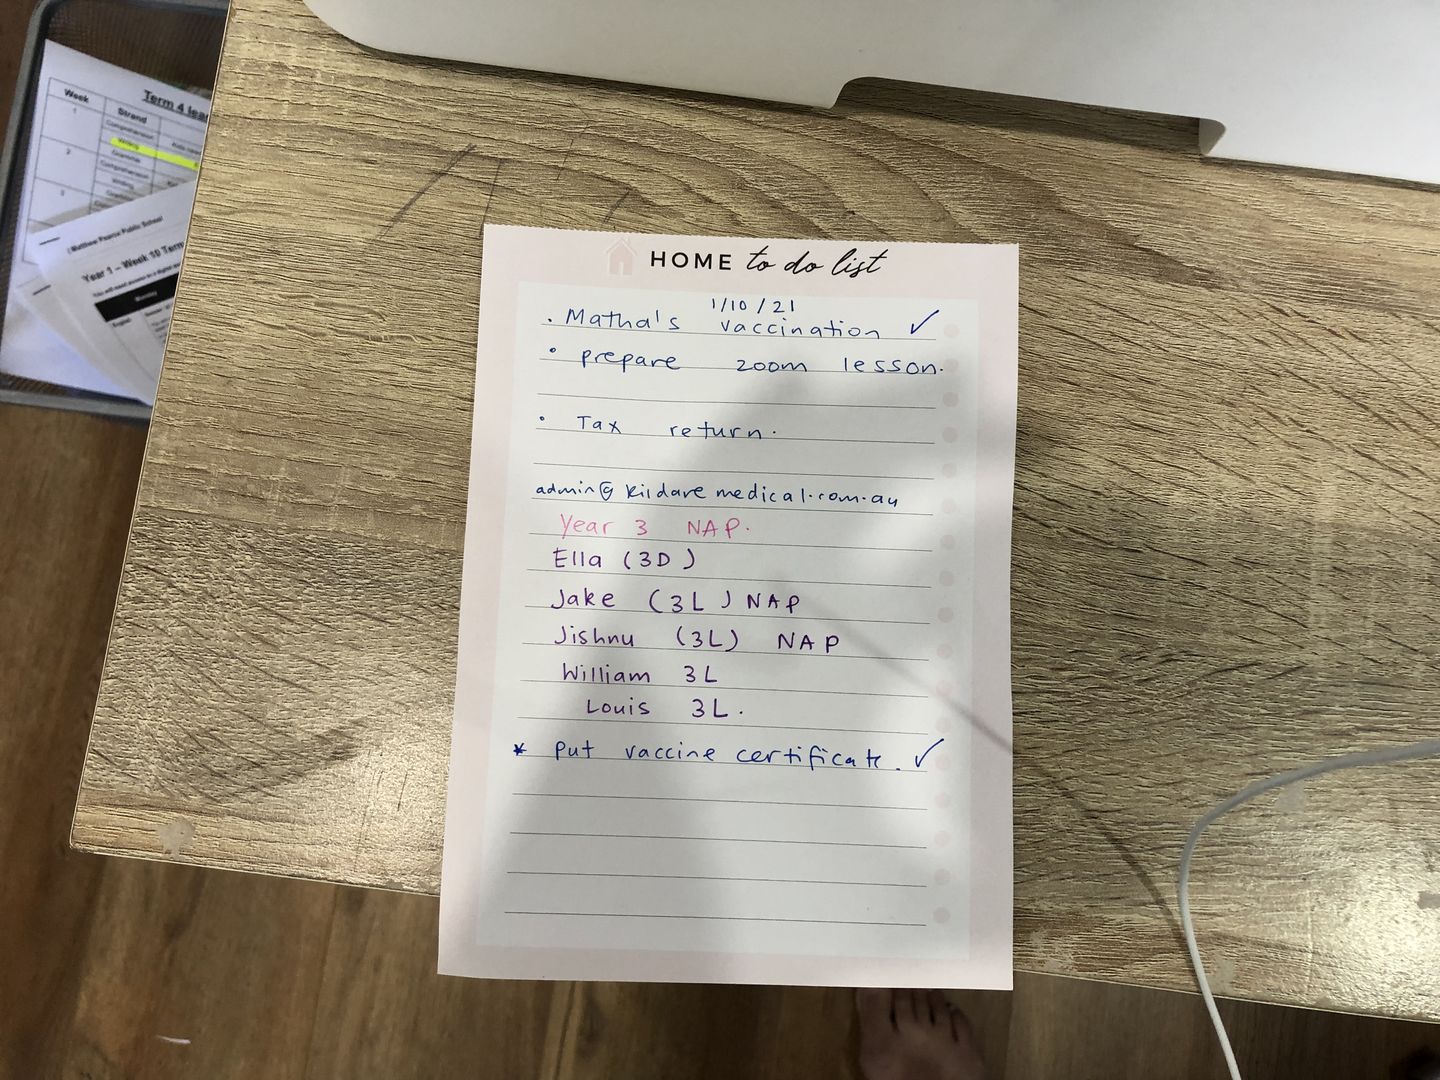 Week
Term 4 lea
Strand
1
Comprehension
Writing
Grammar
2
Comprehension
Writing
3
Matthew Pearce Public School
Year 1 – Week 10 Term
Monday
English
HOME to do list
1/10/21
. Matha's vaccination ✓
• prepare zoom lesson.
• Tax return.
admin@kildaremedical.com.au
Year 3 NAP.
Ella (3D)
Jake (3L) NAP
Jishnu (3L) NAP
William 3L
Louis 3L.
* put vaccine certificate. ✓